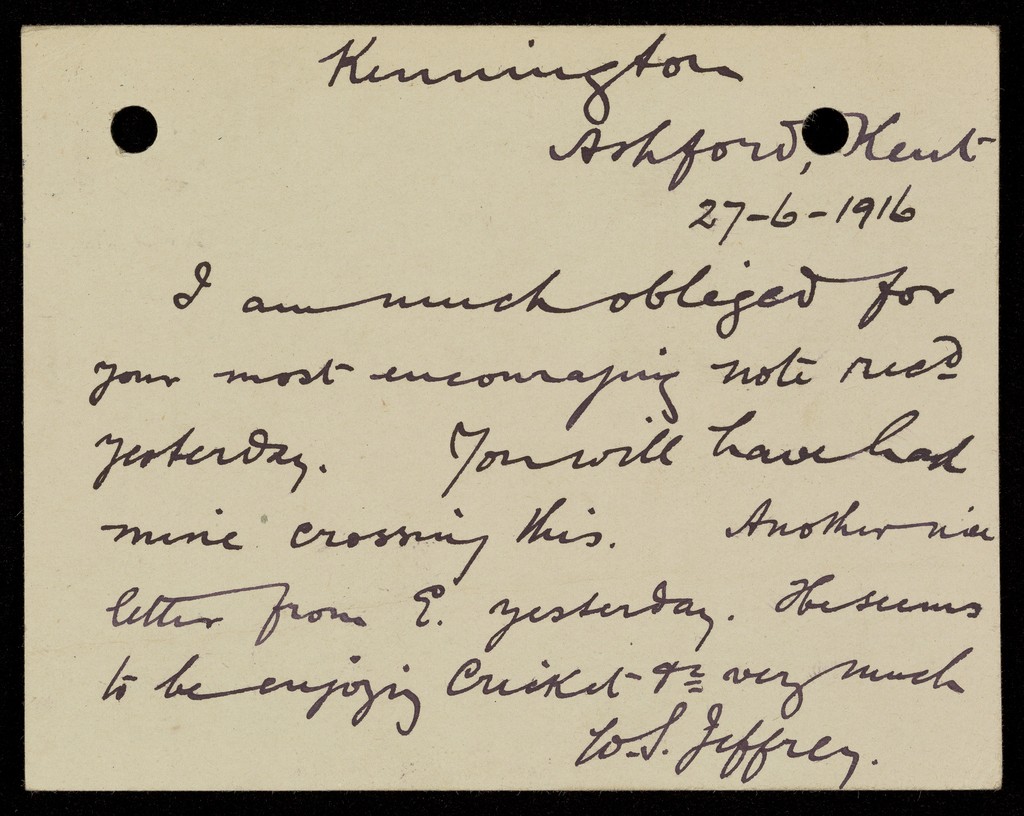 Kennington
Ashford, Kent
27-6-1916
I am much obliged for
your most encouraging note recd
yesterday. You will have had
mine crossing this. Another nice
letter from E. yesterday. He seems
to be enjoying Cricket &c very much
W.S. Jeffrey.